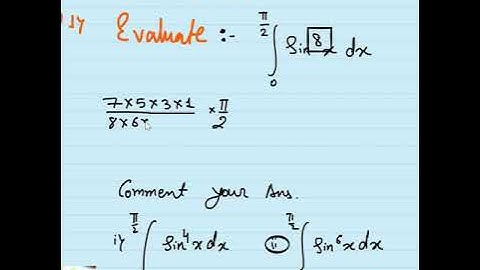 Evaluate :- ∫₀^(π/2) sin⁸x dx
7×5×3×1 / 8×6× × π/2
Comment your Ans.
i) ∫^(π/2) sin⁴x dx ii) ∫^(π/2) sin⁶x dx